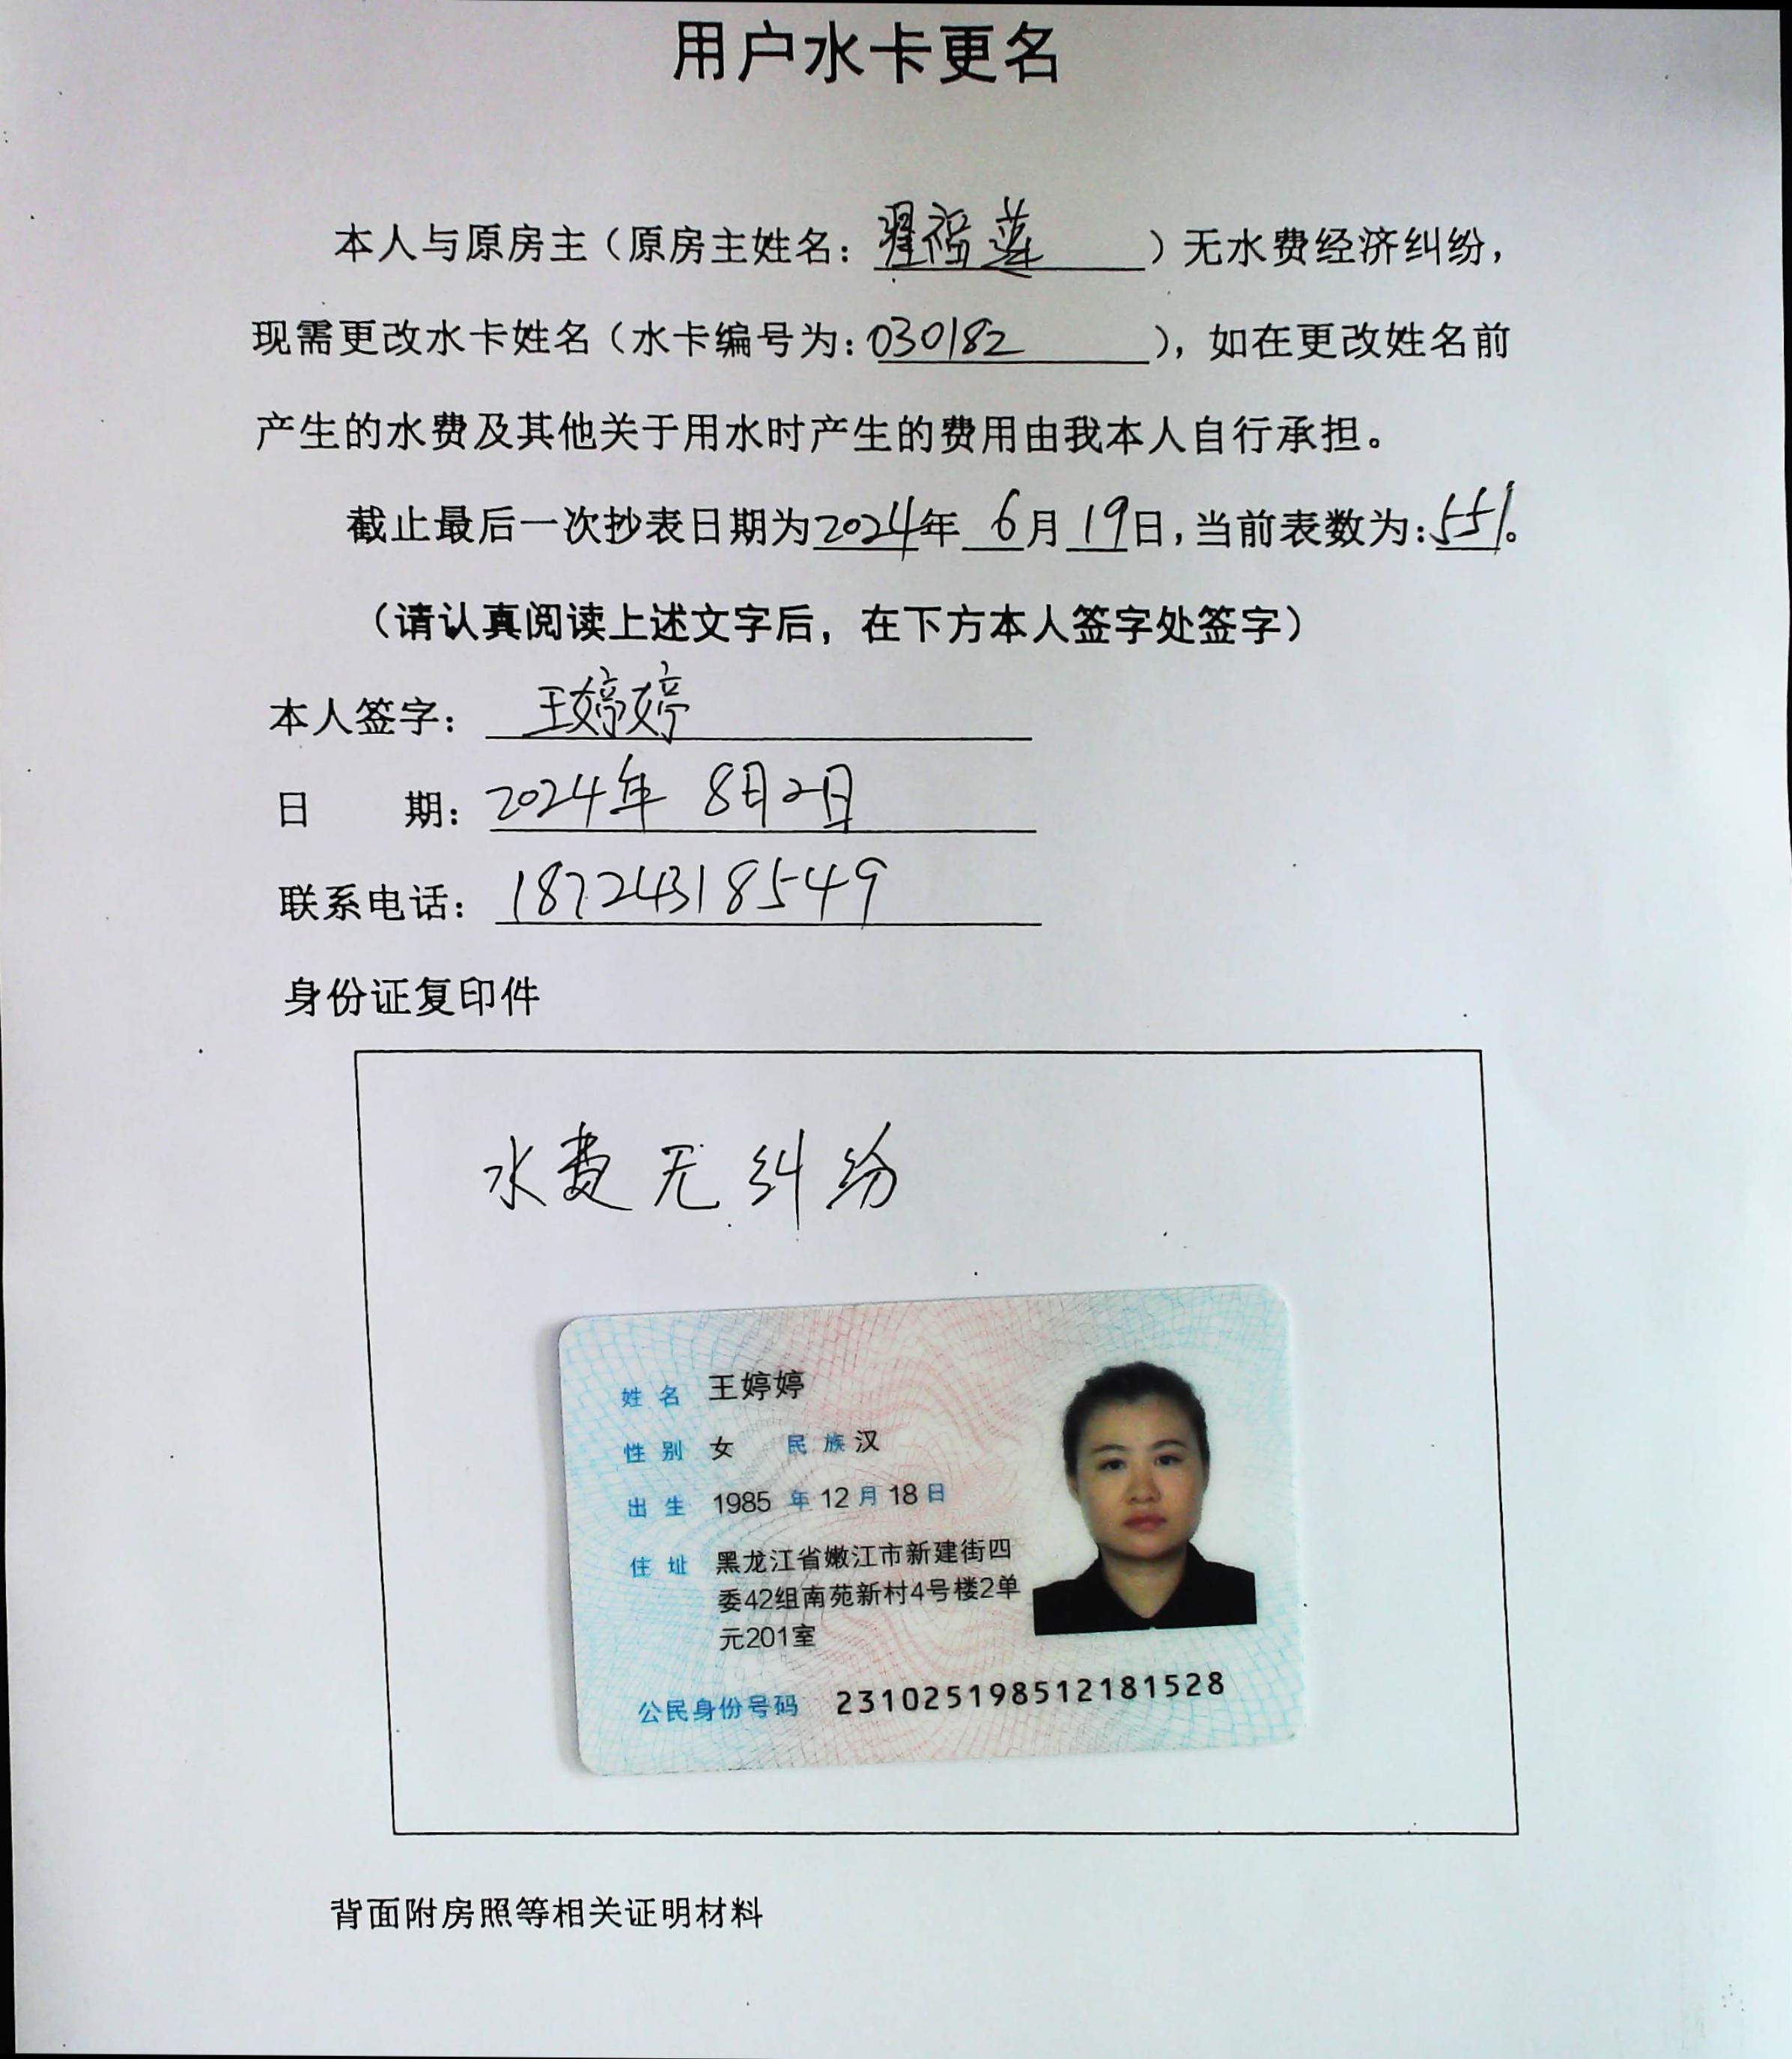 用户水卡更名
本人与原房主（原房主姓名：翟福莲）无水费经济纠纷，
现需更改水卡姓名（水卡编号为：030182），如在更改姓名前
产生的水费及其他关于用水时产生的费用由我本人自行承担。
截止最后一次抄表日期为2024年 6月19日，当前表数为：551。
（请认真阅读上述文字后，在下方本人签字处签字）
本人签字：王婷婷
日 期：2024年 8月2日
联系电话：18724318549
身份证复印件
水费无纠纷
姓名 王婷婷
性别 女 民族 汉
出生 1985 年 12 月 18 日
住址 黑龙江省嫩江市新建街四
委42组南苑新村4号楼2单
元201室
公民身份号码 231025198512181528
背面附房照等相关证明材料